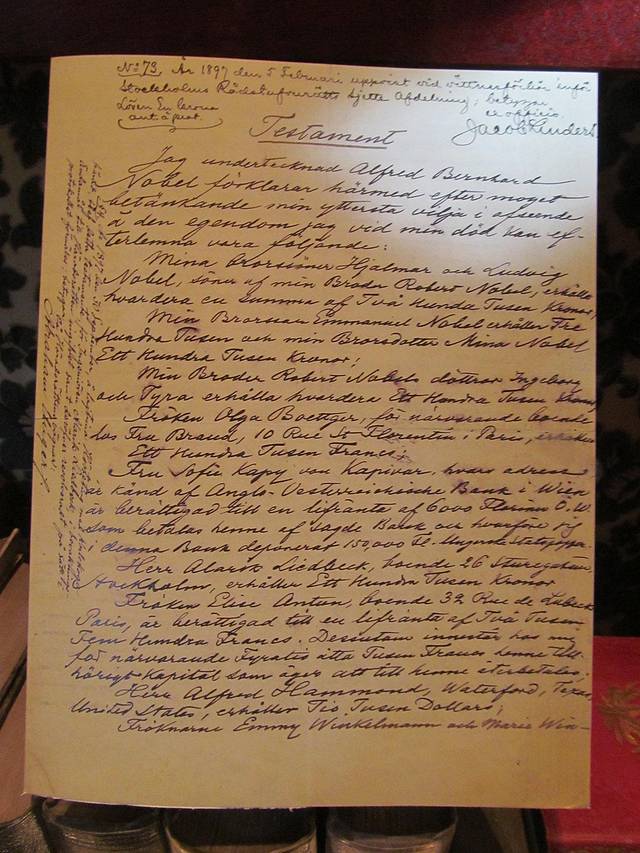 No 73. År 1897 den 5 Februari uppvist vid vittnesförhör inför
Stockholms Rådstufvurätts sjette Afdelning; betygar
Lösen En krona
ex officio
Testament
Jag undertecknad Alfred Bernhard
Nobel förklarar härmed efter moget
betänkande min yttersta vilja i afseende
å den egendom jag vid min död kan ef-
terlemna vara följande:
Mina Brorsöner Hjalmar och Ludvig
Nobel, söner af min Broder Robert Nobel, erhålla
hvardera en summa af Två Hundra Tusen Kronor;
Min Brorson Emmanuel Nobel erhåller Tre
Hundra Tusen och min Brorsdotter Mina Nobel
Ett Hundra Tusen Kronor;
Min Broder Robert Nobels döttrar Ingeborg
och Tyra erhålla hvardera Ett Hundra Tusen Kronor
Fröken Olga Boettger, för närvarande boende
hos Fru Brand, 10 Rue St Florentin i Paris, erhåller
Ett Hundra Tusen Francs;
Fru Sofie Kapy von Kapivar, hvars adress
är känd af Anglo-Oesterreichische Bank i Wien
är berättigad till en lifränta af 6000 Florins Ö.W.
som betalas henne af sagde Bank och hvarföre jag
i denna Bank deponerat 150,000 Fl. i Ungerska Statspapper.
Herr Alarik Liedbeck, boende 26 Sturegatan,
Stockholm, erhåller Ett Hundra Tusen Kronor
Fröken Elise Antun, boende 32 Rue de Lubeck
Paris, är berättigad till en lifränta af Två Tusen
Fem Hundra Francs. Dessutom innestår hos mig
för närvarande Fyratio åtta Tusen Francs henne till-
hörigt Kapital som äger att till henne återbetalas;
Herr Alfred Hammond, Waterford, Texas,
United States, erhåller Tio Tusen Dollars;
Fröknarne Emmy Winkelmann och Marie Win-